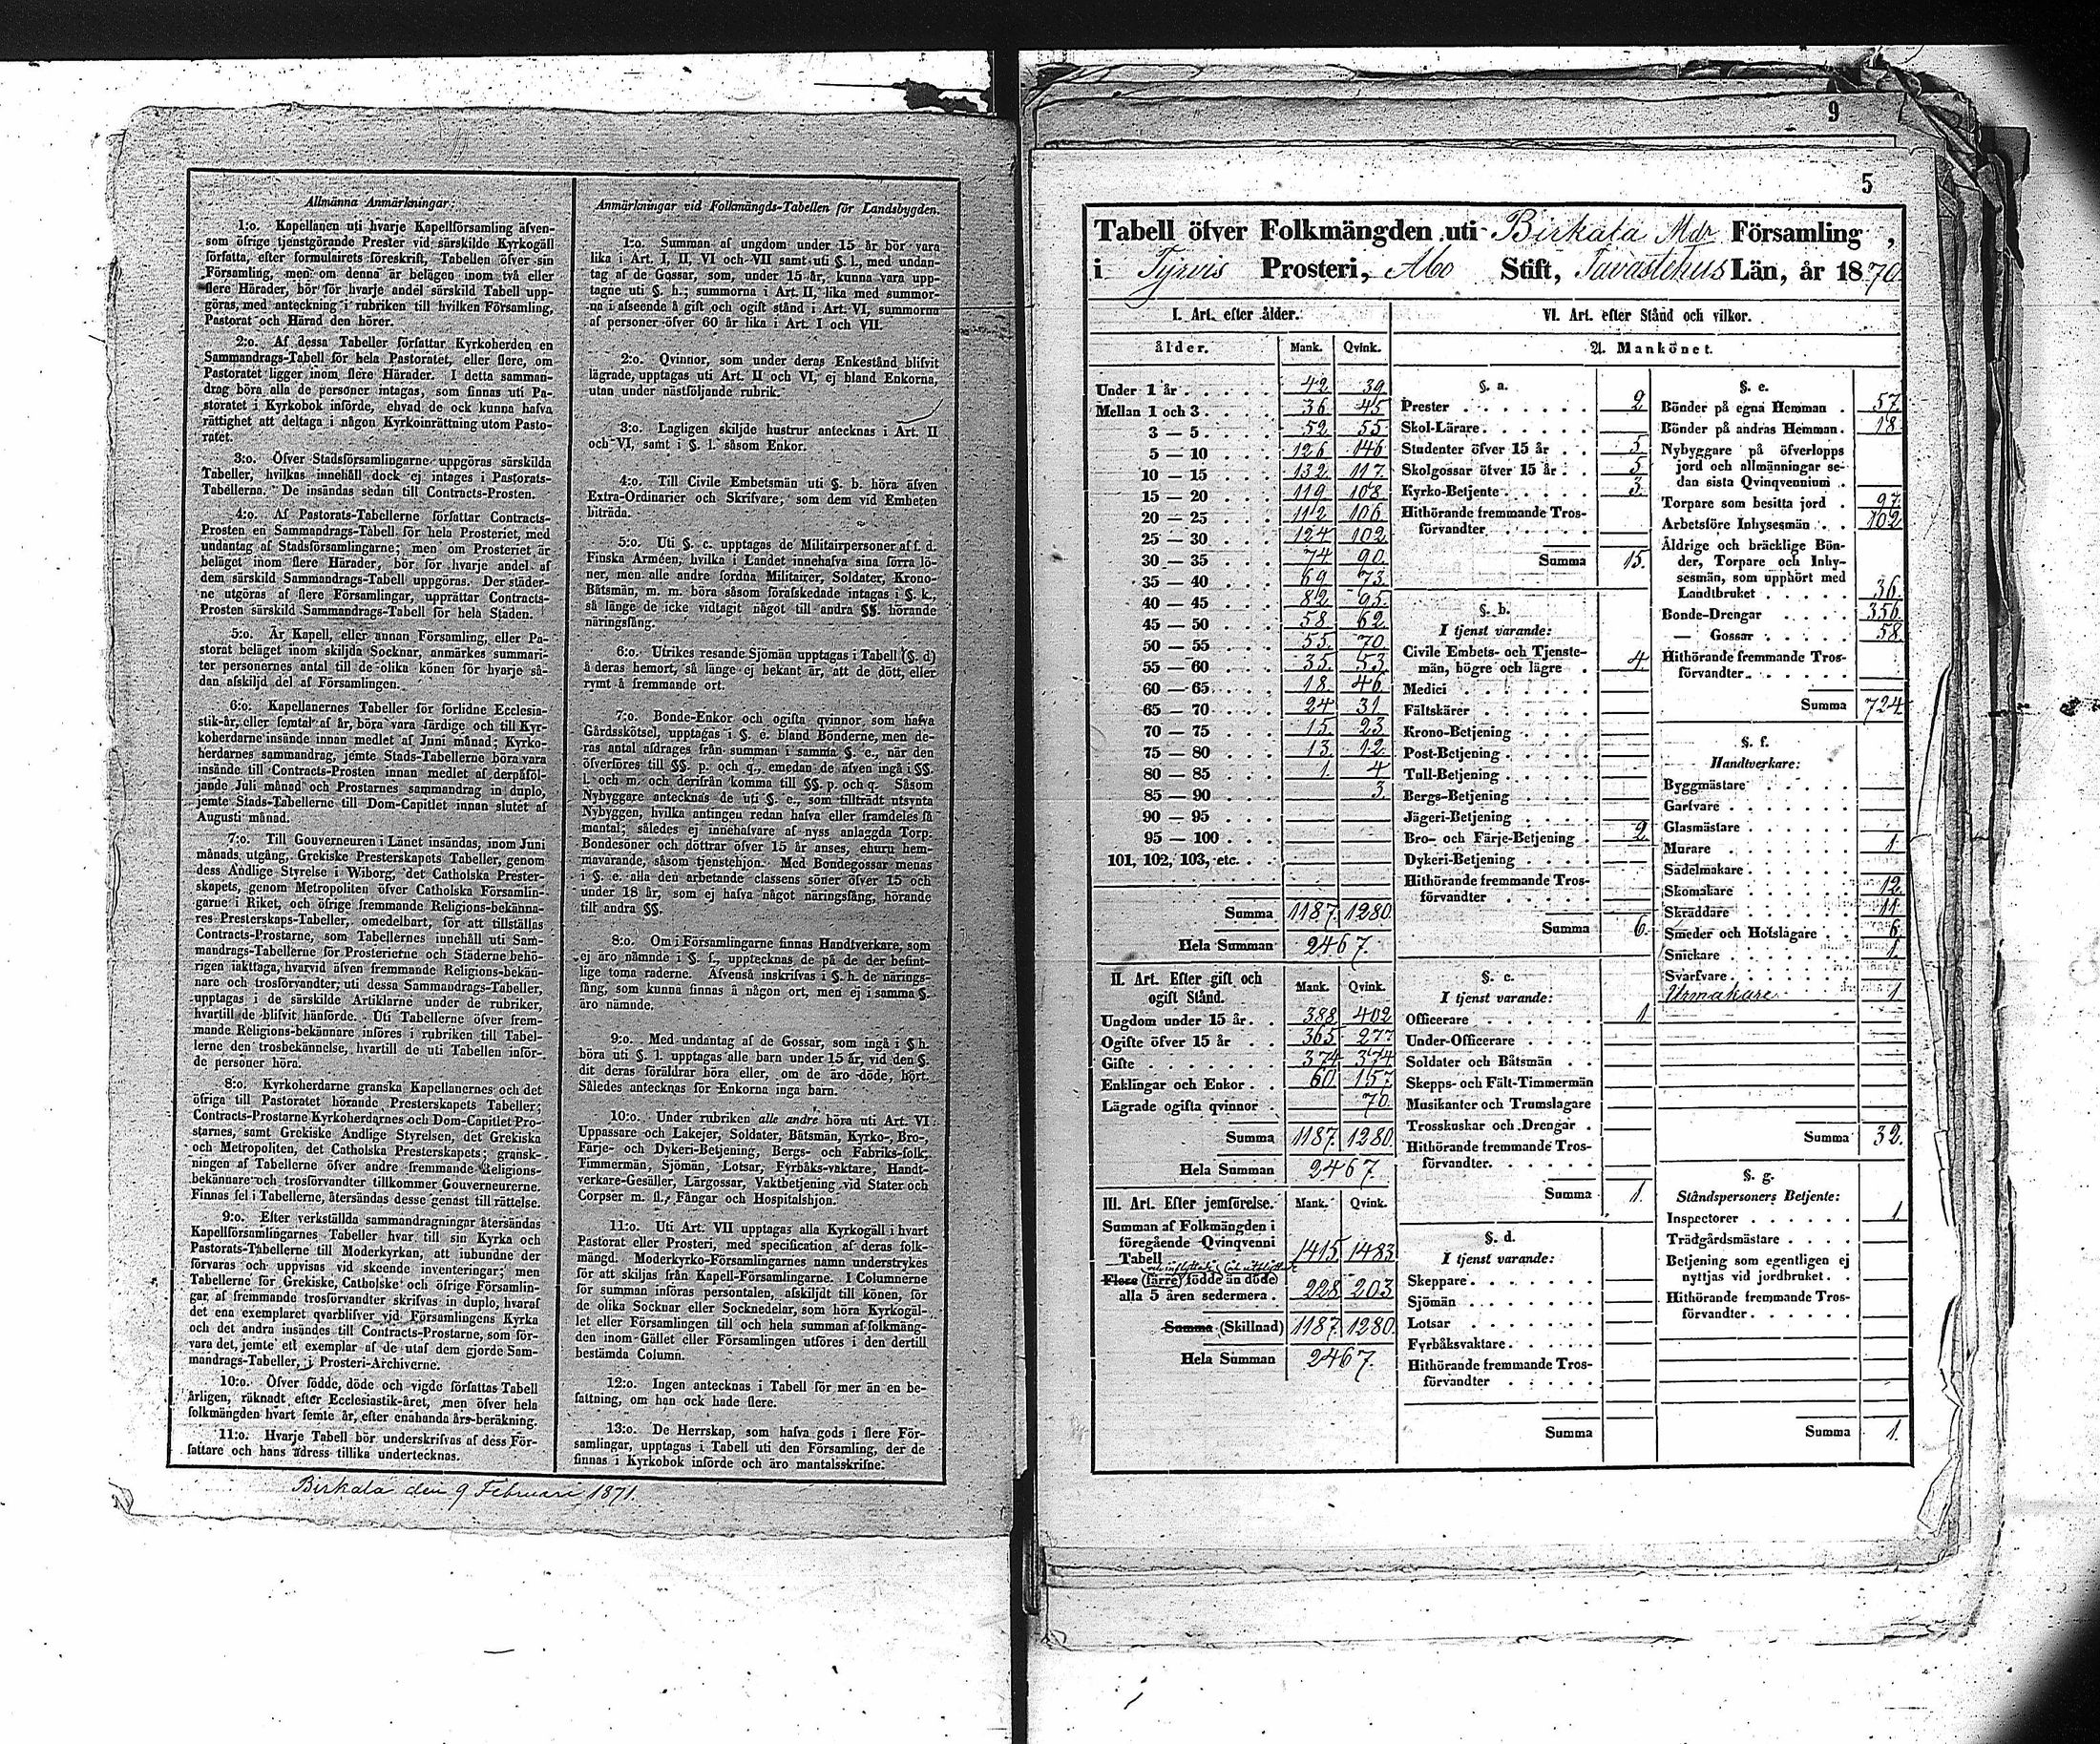 Allmänna Anmärkningar:
1:o. Kapellanen uti hvarje Kapellförsamling äfven-
som öfrige tjenstgörande Prester vid särskilde Kyrkogäll
författa, efter formulairets föreskrift, Tabellen öfver sin
Församling, men om denna är belägen inom två eller
flere Härader, bör för hvarje andel särskild Tabell upp-
göras, med anteckning i rubriken till hvilken Församling,
Pastorat och Härad den hörer.
2:o. Af dessa Tabeller författar Kyrkoherden en
Sammandrags-Tabell för hela Pastoratet, eller flere, om
Pastoratet ligger inom flere Härader. I detta samman-
drag böra alla de personer intagas, som finnas uti Pa-
storatet i Kyrkobok införde, ehvad de ock kunna hafva
rättighet att deltaga i någon Kyrkoinrättning utom Pasto-
ratet.
3:o. Öfver Stadsförsamlingarne uppgöras särskilda
Tabeller, hvilkas innehåll dock ej intages i Pastorats-
Tabellerna. De insändas sedan till Contracts-Prosten.
4:o. Af Pastorats-Tabellerne författar Contracts-
Prosten en Sammandrags-Tabell för hela Prosteriet, med
undantag af Stadsförsamlingarne; men om Prosteriet är
beläget inom flere Härader, bör för hvarje andel af
dem särskild Sammandrags-Tabell uppgöras. Der städer-
ne utgöras af flere Församlingar, upprättar Contracts-
Prosten särskild Sammandrags-Tabell för hela Staden.
5:o. Är Kapell, eller annan Församling, eller Pa-
storat beläget inom skiljda Socknar, anmärkes summari-
ter personernes antal till de olika könen för hvarje så-
dan afskiljd del af Församlingen.
6:o. Kapellanernes Tabeller för förlidne Ecclesia-
stik-år, eller femtal af år, böra vara färdige och till Kyr-
koherdarne insände innan medlet af Juni månad; Kyrko-
herdarnes sammandrag, jemte Stads-Tabellerne böra vara
insände till Contracts-Prosten innan medlet af derpåföl-
jande Juli månad och Prostarnes sammandrag in duplo,
jemte Stads-Tabellerne till Dom-Capitlet innan slutet af
Augusti månad.
7:o. Till Gouverneuren i Länet insändas, inom Juni
månads utgång, Grekiske Presterskapets Tabeller, genom
dess Andlige Styrelse i Wiborg, det Catholska Prester-
skapets, genom Metropoliten öfver Catholska Församlin-
garne i Riket, och öfrige fremmande Religions-bekänna-
res Presterskaps-Tabeller, omedelbart, för att tillställas
Contracts-Prostarne, som Tabellernes innehåll uti Sam-
mandrags-Tabellerne för Prosterierne och Städerne behö-
rigen iakttaga, hvarvid äfven fremmande Religions-bekän-
nare och trosförvandter, uti dessa Sammandrags-Tabeller,
upptagas i de särskilde Artiklarne under de rubriker,
hvartill de blifvit hänförde. Uti Tabellerne öfver frem-
mande Religions-bekännare införes i rubriken till Tabel-
lerne den trosbekännelse, hvartill de uti Tabellen inför-
de personer höra.
8:o. Kyrkoherdarne granska Kapellanernes och det
öfriga till Pastoratet hörande Presterskapets Tabeller;
Contracts-Prostarne Kyrkoherdarnes och Dom-Capitlet Pro-
starnes, samt Grekiske Andlige Styrelsen, det Grekiska
och Metropoliten, det Catholska Presterskapets; gransk-
ningen af Tabellerne öfver andre fremmande Religions-
bekännare och trosförvandter tillkommer Gouverneurerne.
Finnas fel i Tabellerne, återsändas desse genast till rättelse.
9:o. Efter verkställda sammandragningar återsändas
Kapellförsamlingarnes Tabeller hvar till sin Kyrka och
Pastorats-Tabellerne till Moderkyrkan, att inbundne der
förvaras och uppvisas vid skeende inventeringar; men
Tabellerne för Grekiske, Catholske och öfrige Församlin-
gar, af fremmande trosförvandter skrifvas in duplo, hvaraf
det ena exemplaret qvarblifver vid Församlingens Kyrka
och det andra insändes till Contracts-Prostarne, som för-
vara det, jemte ett exemplar af de utaf dem gjorde Sam-
mandrags-Tabeller, i Prosteri-Archiverne.
10:o. Öfver födde, döde och vigde författas Tabell
årligen, räknadt efter Ecclesiastik-året, men öfver hela
folkmängden hvart femte år, efter enahanda års-beräkning.
11:o. Hvarje Tabell bör underskrifvas af dess För-
fattare och hans adress tillika undertecknas.
Anmärkningar vid Folkmängds-Tabellen för Landsbygden.
1:o. Summan af ungdom under 15 år bör vara
lika i Art. I, II, VI och VII samt uti §. l., med undan-
tag af de Gossar, som, under 15 år, kunna vara upp-
tagne uti §. h.; summorna i Art. II, lika med summor-
na i afseende å gift och ogift stånd i Art. VI, summorna
af personer öfver 60 år lika i Art. I och VII.
2:o. Qvinnor, som under deras Enkestånd blifvit
lägrade, upptagas uti Art. II och VI, ej bland Enkorna,
utan under nästföljande rubrik.
3:o. Lagligen skiljde hustrur antecknas i Art. II
och VI, samt i §. l. såsom Enkor.
4:o. Till Civile Embetsmän uti §. b. höra äfven
Extra-Ordinarier och Skrifvare, som dem vid Embeten
biträda.
5:o. Uti §. c. upptagas de Militairpersoner af f. d.
Finska Arméen, hvilka i Landet innehafva sina förra lö-
ner, men alle andre fordna Militairer, Soldater, Krono-
Båtsmän, m. m. böra såsom förafskedade intagas i §. k.,
så länge de icke vidtagit något till andra §§. hörande
näringsfång.
6:o. Utrikes resande Sjömän upptagas i Tabell (§. d)
å deras hemort, så länge ej bekant är, att de dött, eller
rymt å fremmande ort.
7:o. Bonde-Enkor och ogifta qvinnor, som hafva
Gårdsskötsel, upptagas i §. e. bland Bönderne, men de-
ras antal afdrages från summan i samma §. e., när den
öfverföres till §§. p. och q., emedan de äfven ingå i §§.
l. och m. och derifrån komma till §§. p. och q. Såsom
Nybyggare antecknas de uti §. e., som tillträdt utsynta
Nybyggen, hvilka antingen redan hafva eller framdeles få
mantal; således ej innehafvare af nyss anlagda Torp.
Bondesöner och döttrar öfver 15 år anses, ehuru hem-
mavarande, såsom tjenstehjon. Med Bondegossar menas
i §. e. alla den arbetande classens söner öfver 15 och
under 18 år, som ej hafva något näringsfång, hörande
till andra §§.
8:o. Om i Församlingarne finnas Handtverkare, som
ej äro nämnde i §. f., upptecknas de på de der befint-
lige toma raderne. Äfvenså inskrifvas i §. h. de närings-
fång, som kunna finnas å någon ort, men ej i samma §.
äro nämnde.
9:o. Med undantag af de Gossar, som ingå i §. h.
böra uti §. l. upptagas alle barn under 15 år, vid den §.
dit deras föräldrar höra eller, om de äro döde, hört.
Således antecknas för Enkorna inga barn.
10:o. Under rubriken alle andre höra uti Art. VI:
Uppassare och Lakejer, Soldater, Båtsmän, Kyrko-, Bro-,
Färje- och Dykeri-Betjening, Bergs- och Fabriks-folk,
Timmermän, Sjömän, Lotsar, Fyrbåks-vaktare, Handt-
verkare-Gesäller, Lärgossar, Vaktbetjening vid Stater och
Corpser m. fl., Fångar och Hospitalshjon.
11:o. Uti Art. VII upptagas alla Kyrkogäll i hvart
Pastorat eller Prosteri, med specification af deras folk-
mängd. Moderkyrko-Församlingarnes namn understrykes
för att skiljas från Kapell-Församlingarne. I Columnerne
för summan införas persontalen, afskiljdt till könen, för
de olika Socknar eller Socknedelar, som höra Kyrkogäl-
let eller Församlingen till och hela summan af folkmäng-
den inom Gället eller Församlingen utföres i den dertill
bestämda Column.
12:o. Ingen antecknas i Tabell för mer än en be-
fattning, om han ock hade flere.
13:o. De Herrskap, som hafva gods i flere För-
samlingar, upptagas i Tabell uti den Församling, der de
finnas i Kyrkobok införde och äro mantalsskrifne.
Birkala den 9 Februari 1871.
9
5
Tabell öfver Folkmängden uti Birkala Mdr Församling,
i Tyrvis Prosteri, Abo Stift, Tavastehus Län, år 1870
I. Art. efter ålder.
ålder. Mank. Qvink.
Under 1 år 42 39
Mellan 1 och 3 36 45
3 — 5 52 55
5 — 10 126 146
10 — 15 132 117
15 — 20 119 108
20 — 25 112 106
25 — 30 124 102
30 — 35 74 90
35 — 40 69 73
40 — 45 82 95
45 — 50 58 62
50 — 55 55 70
55 — 60 35 53
60 — 65 18 46
65 — 70 24 31
70 — 75 15 23
75 — 80 13 12
80 — 85 1 4
85 — 90 3
90 — 95
95 — 100
101, 102, 103, etc.
Summa 1187 1280
Hela Summan 2467.
II. Art. Efter gift och
ogift Stånd. Mank. Qvink.
Ungdom under 15 år 388 402
Ogifte öfver 15 år 365 277
Gifte 374 374
Enklingar och Enkor 60 157
Lägrade ogifta qvinnor 70
Summa 1187 1280
Hela Summan 2467.
III. Art. Efter jemförelse. Mank. Qvink.
Summan af Folkmängden i
föregående Qvinqvenni
Tabell 1415 1483
Flere (färre) födde än döde
alla 5 åren sedermera 228 203
Summa (Skillnad) 1187 1280
Hela Summan 2467.
VI. Art. efter Stånd och vilkor.
A. Mankönet.
§. a.
Prester 2
Skol-Lärare
Studenter öfver 15 år 5
Skolgossar öfver 15 år 5
Kyrko-Betjente 3
Hithörande fremmande Tros-
förvandter
Summa 15.
§. b.
I tjenst varande:
Civile Embets- och Tjenste-
män, högre och lägre 4
Medici
Fältskärer
Krono-Betjening
Post-Betjening
Tull-Betjening
Bergs-Betjening
Jägeri-Betjening
Bro- och Färje-Betjening 2
Dykeri-Betjening
Hithörande fremmande Tros-
förvandter
Summa 6.
§. c.
I tjenst varande:
Officerare 1
Under-Officerare
Soldater och Båtsmän
Skepps- och Fält-Timmermän
Musikanter och Trumslagare
Trosskuskar och Drengar
Hithörande fremmande Tros-
förvandter
Summa 1.
§. d.
I tjenst varande:
Skeppare
Sjömän
Lotsar
Fyrbåksvaktare
Hithörande fremmande Tros-
förvandter
Summa
§. e.
Bönder på egna Hemman 57
Bönder på andras Hemman 18
Nybyggare på öfverlopps
jord och allmänningar se-
dan sista Qvinqvennium
Torpare som besitta jord 97
Arbetsföre Inhysesmän 102
Åldrige och bräcklige Bön-
der, Torpare och Inhy-
sesmän, som upphört med
Landtbruket 36
Bonde-Drengar 356
— Gossar 58
Hithörande fremmande Tros-
förvandter
Summa 724
§. f.
Handtverkare:
Byggmästare
Garfvare
Glasmästare
Murare 1
Sadelmakare
Skomakare 12
Skräddare 11
Smeder och Hofslagare 6
Snickare 1
Svarfvare
Urmakare 1
Summa 32.
§. g.
Ståndspersoners Betjente:
Inspectorer 1
Trädgårdsmästare
Betjening som egentligen ej
nyttjas vid jordbruket
Hithörande fremmande Tros-
förvandter
Summa 1.